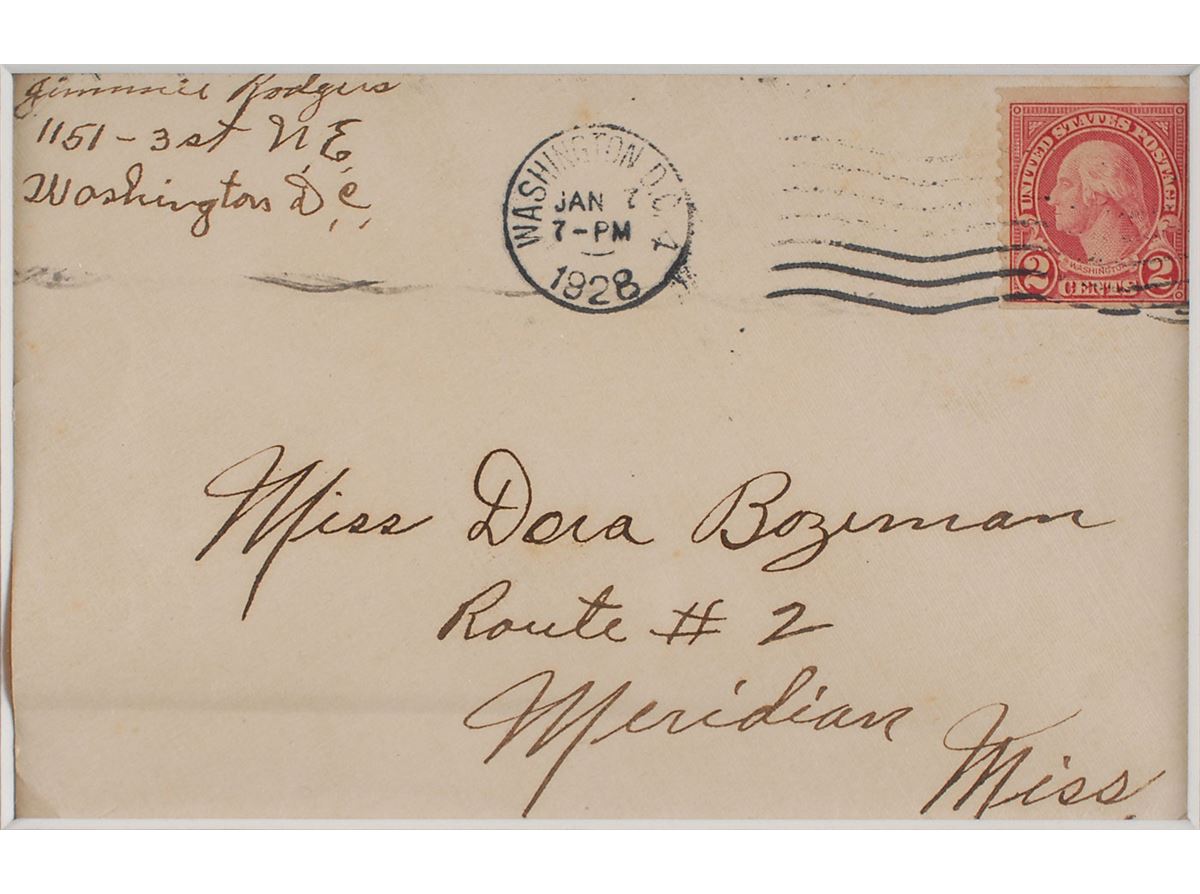 Jimmie Rodgers
1151 - 3 st N.E.
Washington D.C.
WASHINGTON D.C. 4
JAN 7
7 - PM
1928
UNITED STATES POSTAGE
WASHINGTON
2 CENTS 2
Miss Dora Bozeman
Route # 2
Meridian
Miss.